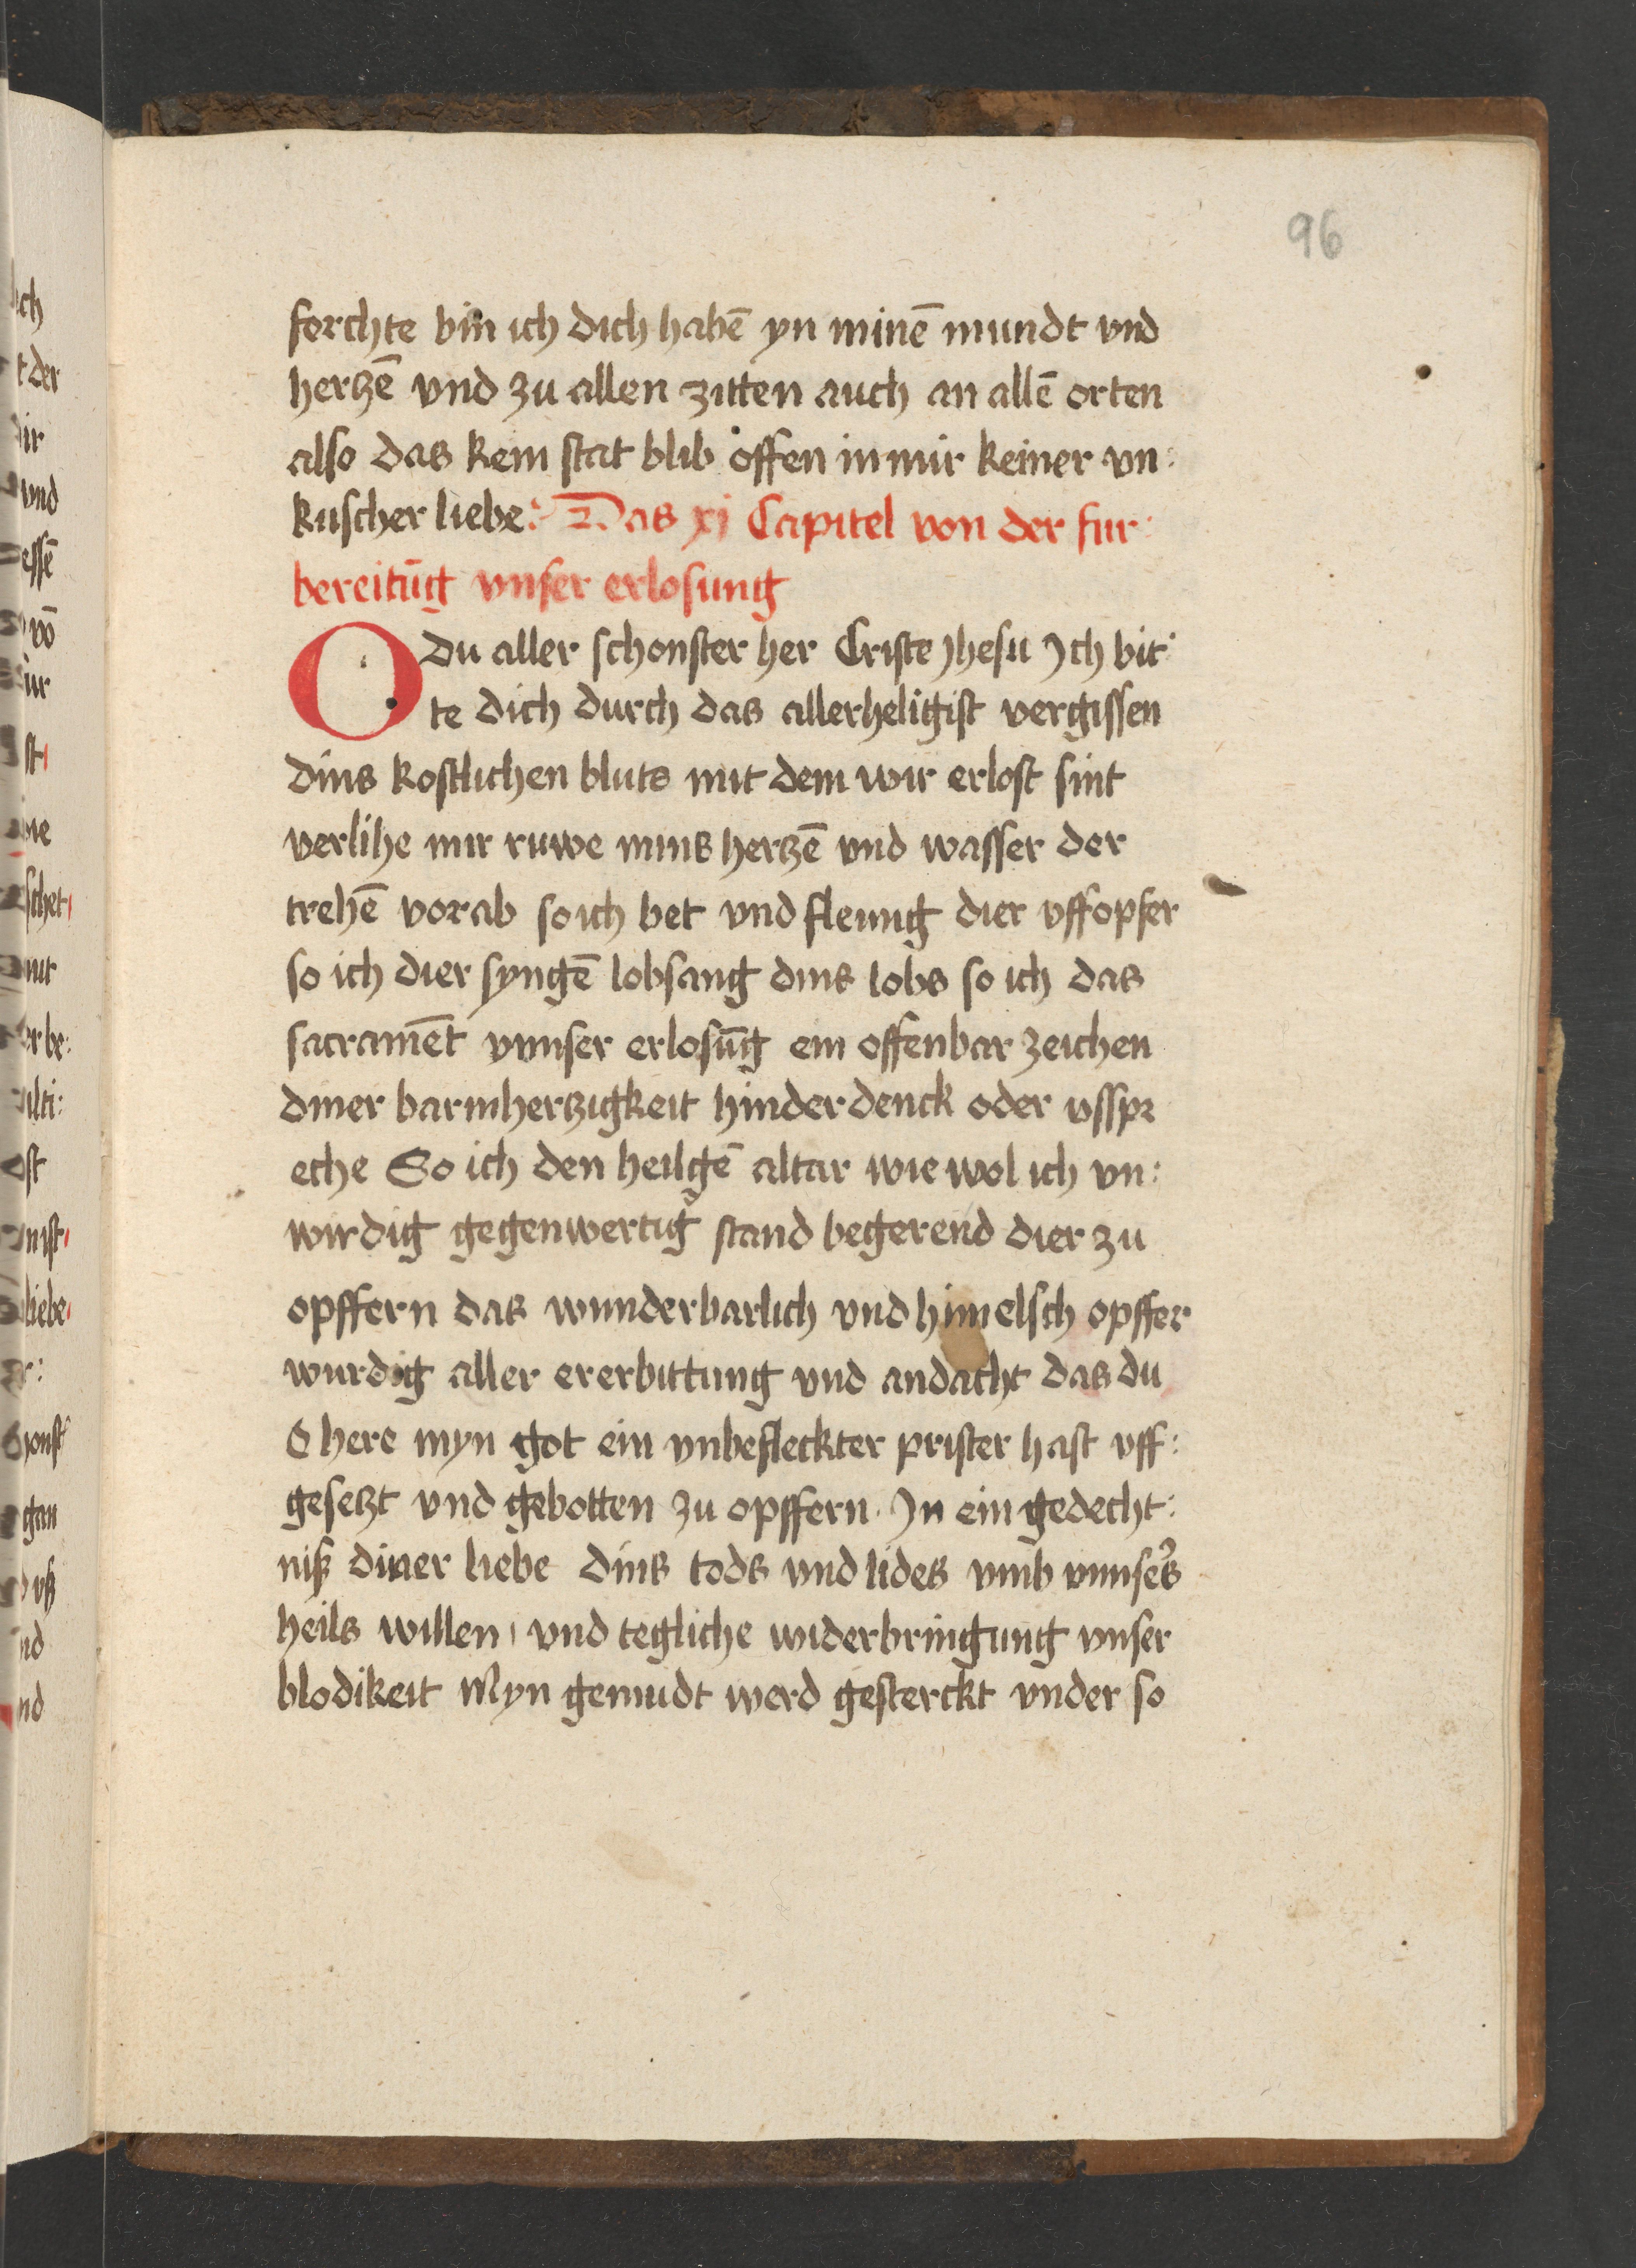 96
ferchte bin ich dich habē yn minē mundt vnd
hertzē vnd zu allen zitten auch an allē orten
also das kein stat blib offen in mir keiner vn:
kuscher liebe: Das xj Capitel von der fur:
bereitūg vnser erlosung
O du aller schonster her Criste Jhesu Ich bit:
te dich durch das allerheligist vergissen
dins kostlichen bluts mit dem wir erlost sint
verlihe mir ruwe mins hertzē vnd wasser der
trehē vorab so ich bet vnd fleung dier vffopfer
so ich dier syngē lobsang dins lobs so ich das
sacramēt vnnser erlosūg ein offenbar zeichen
diner barmhertzigkeit hinderdenck oder vsspr
eche So ich den heilgē altar wie wol ich vn:
wirdig gegenwertig stand begerend dier zu
opffern das wunderbarlich vnd himelsch opffer
wurdig aller ererbittung vnd andacht das du
O here myn got ein vnbefleckter prister hast vff:
gesetzt vnd gebotten zu opffern. In ein gedecht:
niß diner liebe dins tods vnd lides vmb vnnsers
heils willen, vnd tegliche widerbringung vnser
blodikeit Myn gemudt werd gesterckt vnder so